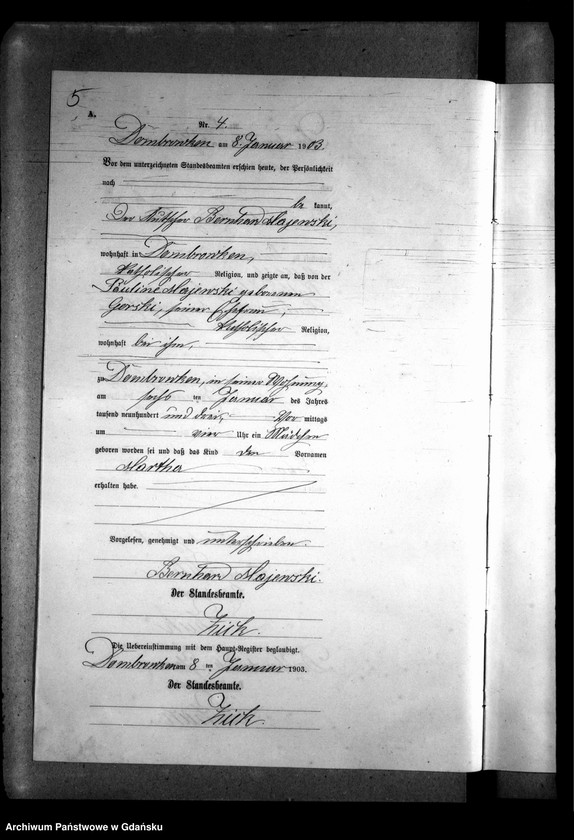 5
A.
Nr. 4.
Dombrowken am 8. Januar 1903.
Vor dem unterzeichneten Standesbeamten erschien heute, der Persönlichkeit
nach
be kannt,
Der Kutscher Bernhard Majewski,
wohnhaft in Dombrowken,
katholischer Religion, und zeigte an, daß von der
Pauline Majewski geborenen
Gorski, seiner Ehefrau,
katholischer Religion,
wohnhaft bei ihm,
zu Dombrowken, in seiner Wohnung,
am sechs ten Januar des Jahres
tausend neunhundert und drei, Vor mittags
um vier Uhr ein Mädchen
geboren worden sei und daß das Kind den Vornamen
Martha
erhalten habe.
Vorgelesen, genehmigt und unterschrieben.
Bernhard Majewski.
Der Standesbeamte.
Zich.
Die Uebereinstimmung mit dem Haupt-Register beglaubigt.
Dombrowken am 8 ten Januar 1903.
Der Standesbeamte.
Zich.
Archiwum Państwowe w Gdańsku